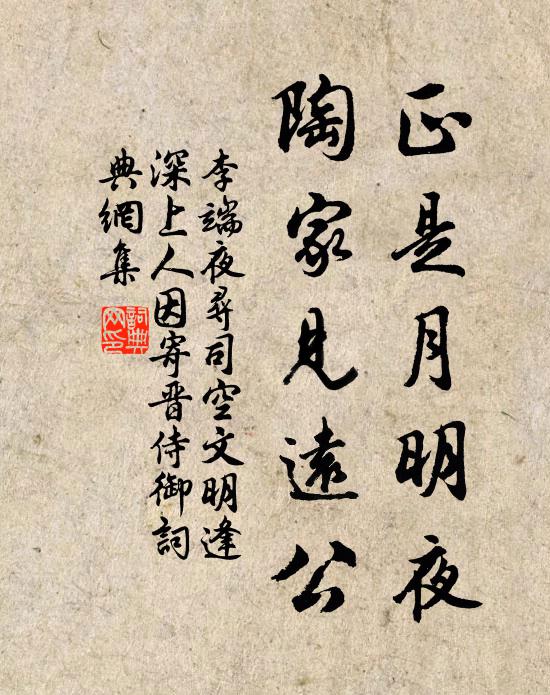 正是月明夜
陶家見遠公
李端夜尋司空文明逢
深上人因寄晋侍御詞
典網集
詞典
网印